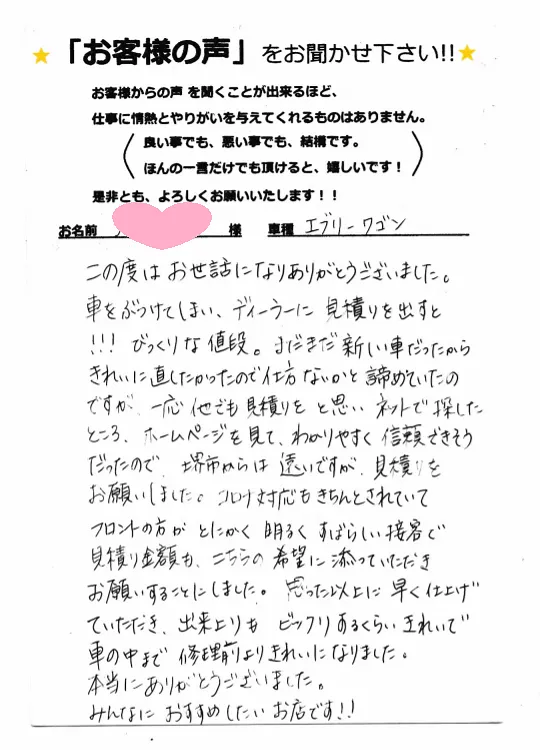 「お客様の声」をお聞かせ下さい!!
お客様からの声 を聞くことが出来るほど、
仕事に情熱とやりがいを与えてくれるものはありません。
良い事でも、悪い事でも、結構です。
ほんの一言だけでも頂けると、嬉しいです！
是非とも、よろしくお願いいたします！！
お名前 様 車種 エブリーワゴン
この度は お世話になりありがとうございました。
車をぶつけてしまい、ディーラーに 見積りを出すと
!!! びっくりな値段。まだまだ新しい車だったから
きれいに直したかったので仕方ないかと諦めていたの
ですが、一応 他でも見積りを と思い ネットで探した
ところ、ホームページを見て、わかりやすく 信頼できそう
だったので、堺市からは 遠いですが、見積りを
お願いしました。コロナ対応もきちんとされていて
フロントの方が とにかく 明るく すばらしい接客で
見積り金額も、こちらの 希望に添っていただき
お願いすることにしました。思った以上に 早く仕上げ
ていただき、出来上りも ビックリするくらい きれいで
車の中まで 修理前よりきれいになりました。
本当にありがとうございました。
みんなに おすすめしたい お店です!!